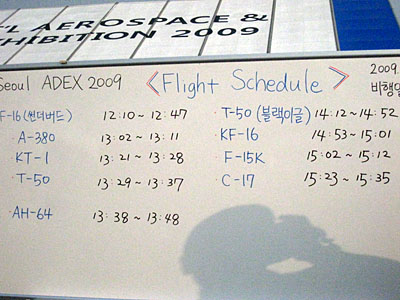 L AEROSPACE &
HIBITION 2009
Seoul ADEX 2009 <Flight Schedule> 2009.
비행일
F-16 (썬더버드) 12:10 ~ 12:47
A-380 13:02 ~ 13:11
KT-1 13:21 ~ 13:28
T-50 13:29 ~ 13:37
AH-64 13:38 ~ 13:48
· T-50 (블랙이글) 14:12 ~ 14:52
KF-16 14:53 ~ 15:01
· F-15K 15:02 ~ 15:12
· C-17 15:23 ~ 15:35